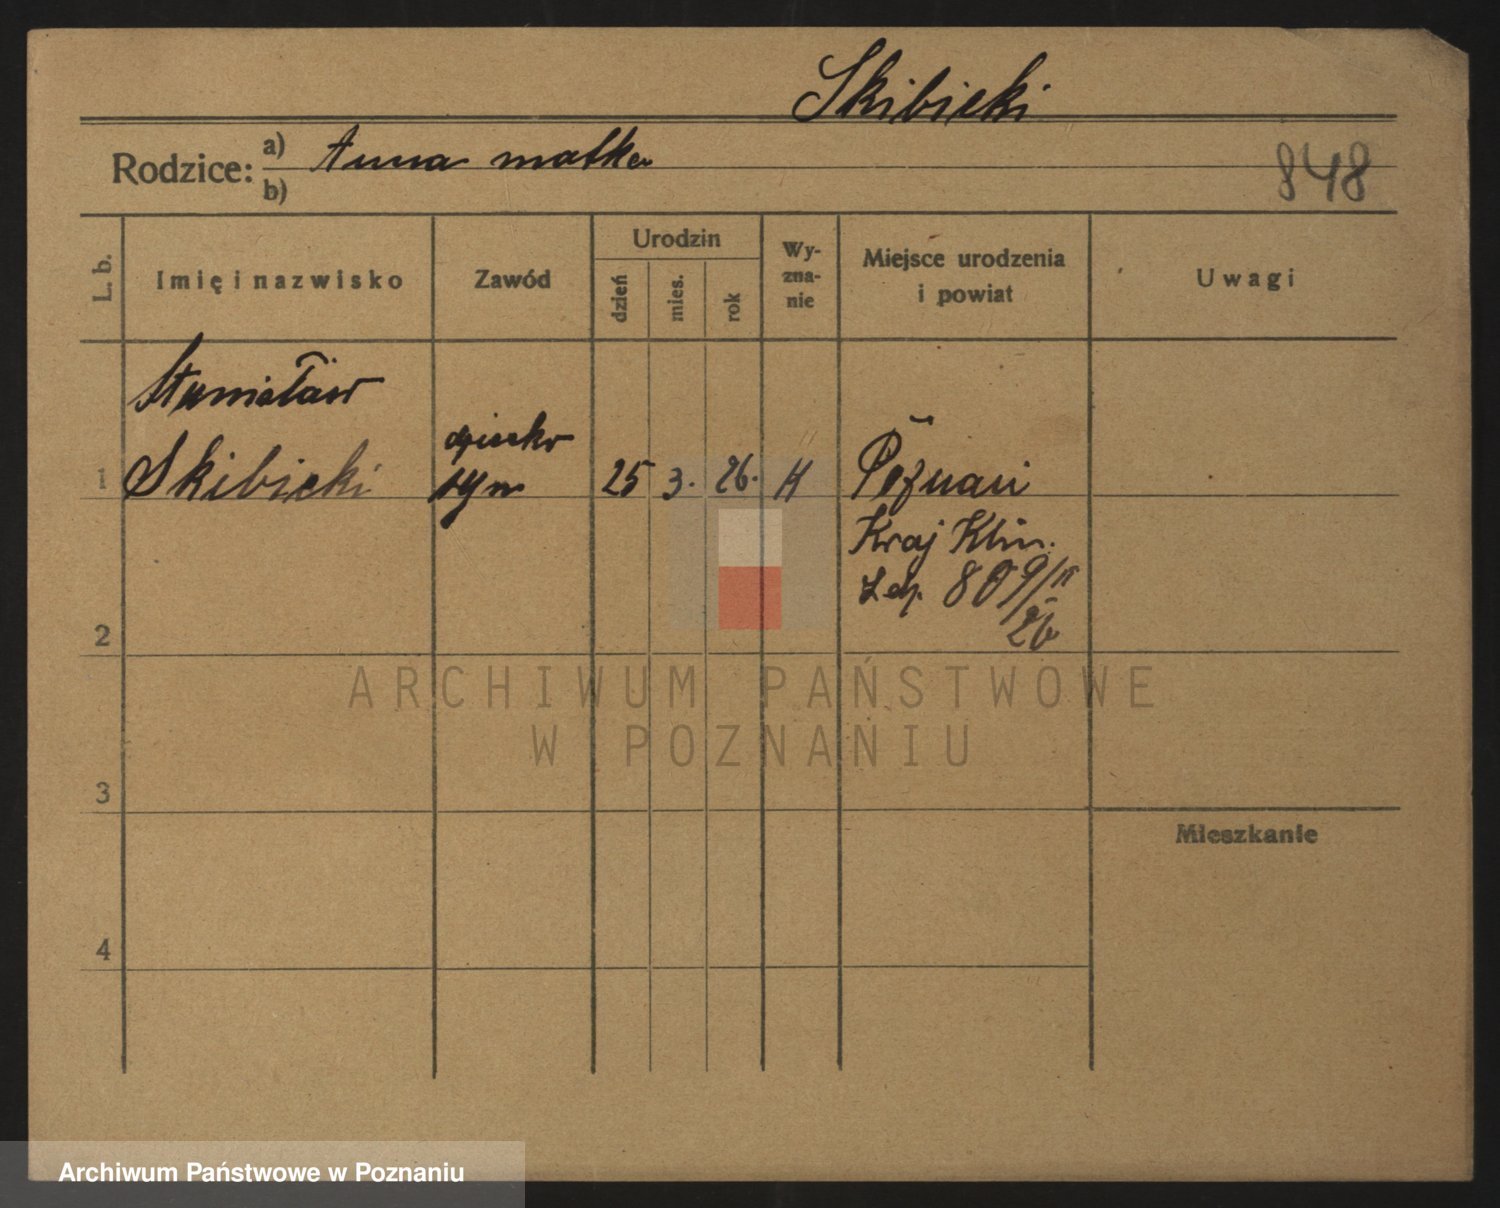 Skibicki
Rodzice: a) Anna matka
b)
848
L. b.
Imię i nazwisko
Zawód
Urodzin
dzień
mies.
rok
Wy-
zna-
nie
Miejsce urodzenia
i powiat
Uwagi
Stanisław
1 Skibicki
dziecko
syn
25 3. 26.
Poznań
Kraj Klin.
809/
26
2
3
4
Mieszkanie
ARCHIWUM PAŃSTWOWE
W POZNANIU
Archiwum Państwowe w Poznaniu